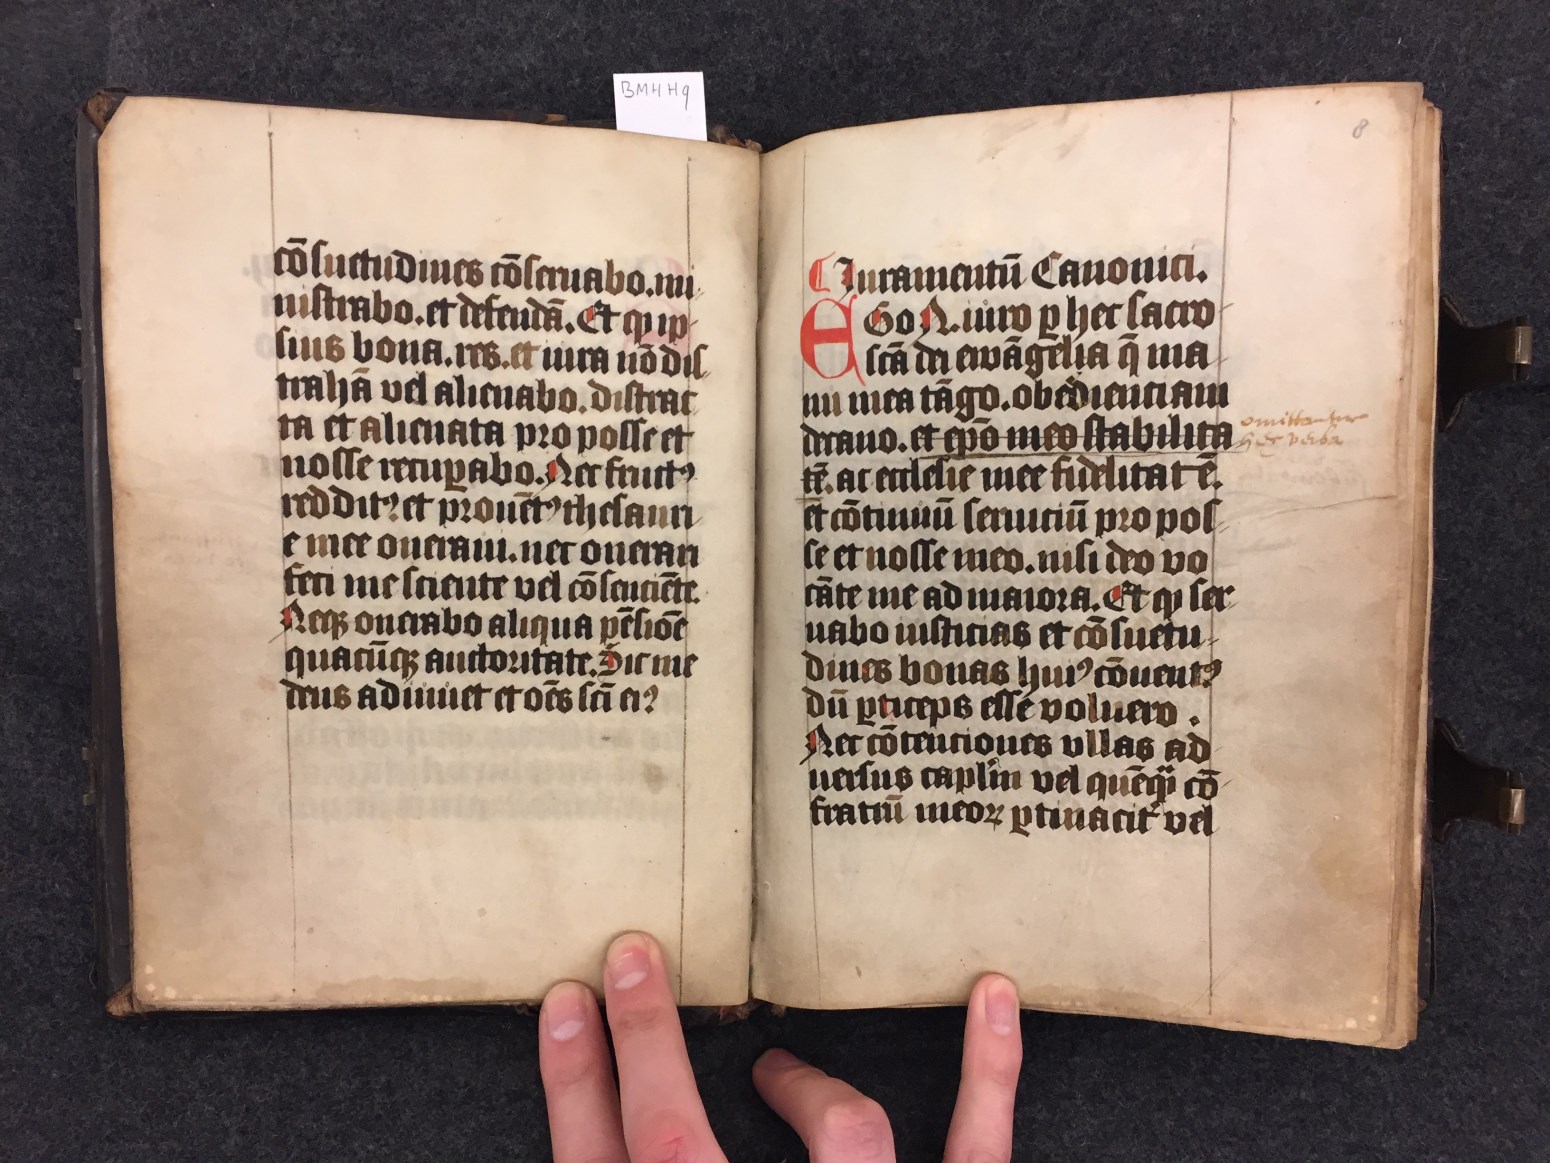 BM4H9
cōsuetudines cōseruabo. mi
nistrabo. et defendā. Et qꝫ ip
sius bona. res. et iura nō dis
trahā vel alienabo. distrac
ta et alienata pro posse et
nosse recuꝑabo. Nec fructꝰ
redditꝰ et prouētꝰ thesauri
e mee oneraui. nec onerari
feci me sciente vel cōsenciēte.
Neqꝫ onerabo aliqua pēsiōe
quacūqꝫ auctoritate. Sic me
deus adiuuet et oēs scī eiꝰ
8
Iuramentū Canonici.
EGo N. iuro ꝑ hec sacro
scā dei ewāgelia q̄ ma
nu mea tāgo. obedienciam
decano. et epō meo stabilita
tē. ac ecclesie mee fidelitatē.
et cōtinuū seruiciū pro pos
se et nosse meo. nisi deo vo
cāte me ad maiora. Et qꝫ ser
uabo iusticias et cōsuetu
dines bonas huiꝰ cōuentꝰ
dū ꝑticeps esse voluero.
Nec cōtenciones vllas ad
uersus caplīn vel quēqꝫ cō
fratrū meoꝝ ꝑtinacit̉ vel
omittantur
hec verba